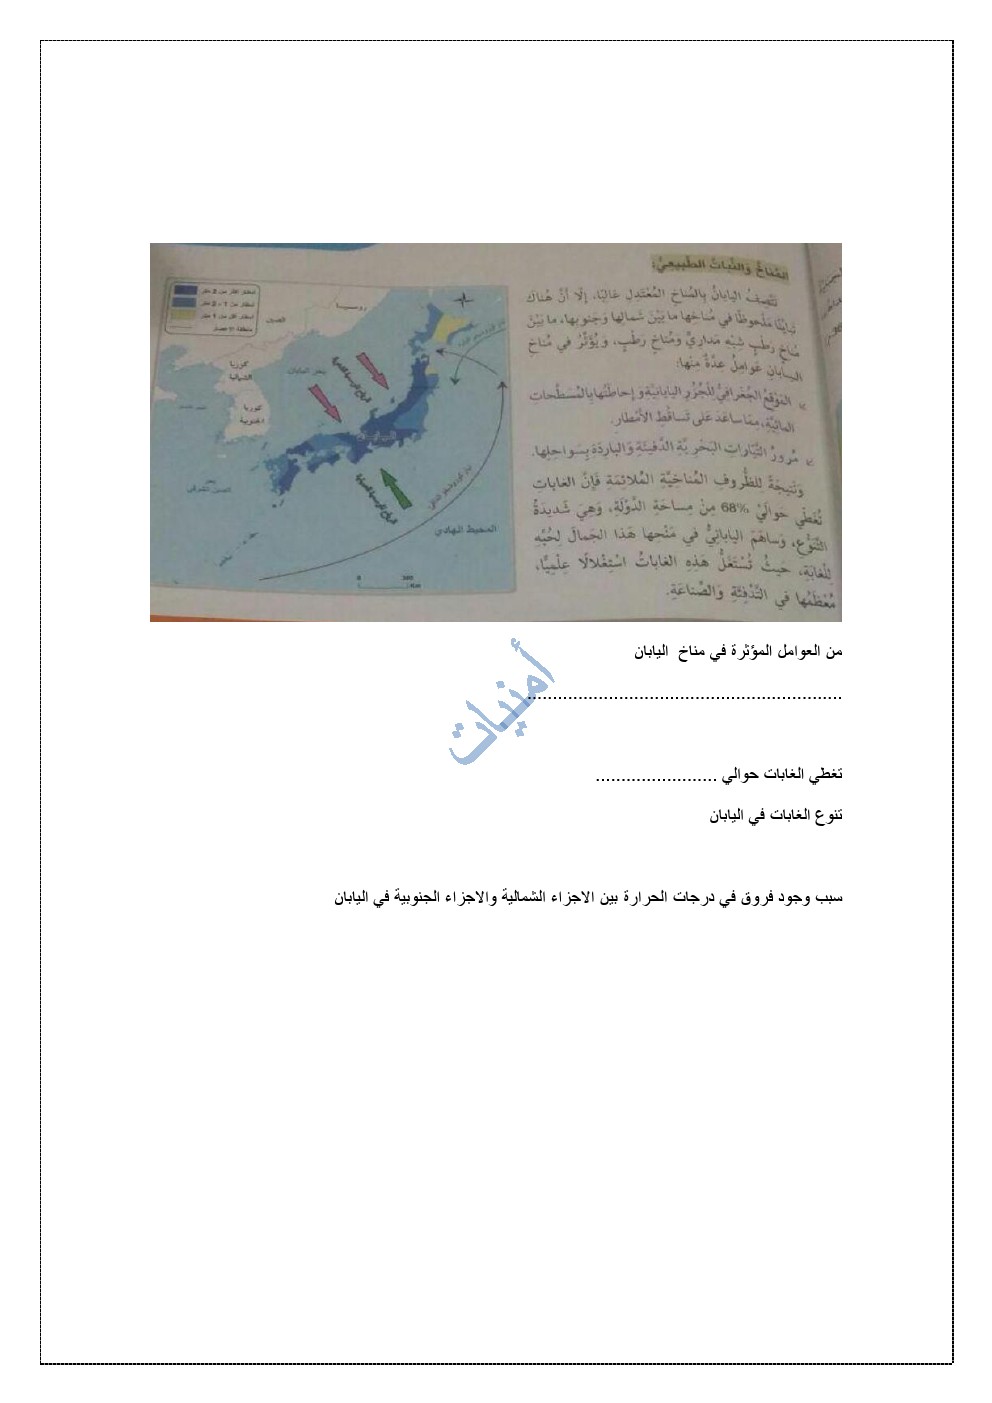 المُناخُ وَالنَّباتُ الطَّبيعِيُّ:
تَتَّصِفُ اليابانُ بِالمُناخِ المُعْتَدِلِ غالِبًا، إِلّا أَنَّ هُناكَ
تَبايُنًا مَلْحوظًا في مُناخِها ما بَيْنَ شَمالِها وَجَنوبِها، ما بَيْنَ
مُناخٍ رَطْبٍ شِبْهِ مَدارِيٍّ وَمُناخٍ رَطْبٍ، وَيُؤَثِّرُ في مُناخِ
اليابانِ عَوامِلُ عِدَّةٌ مِنْها:
المَوْقِعُ الجُغْرافِيُّ لِلْجُزُرِ اليابانِيَّةِ وَإِحاطَتُها بِالمُسَطَّحاتِ
المائِيَّةِ، مِمّا ساعَدَ عَلى تَساقُطِ الأَمْطارِ.
مُرورُ التَّيّاراتِ البَحْرِيَّةِ الدَّفيئَةِ وَالبارِدَةِ بِسَواحِلِها.
وَنَتيجَةً لِلظُّروفِ المُناخِيَّةِ المُلائِمَةِ فَإِنَّ الغاباتِ
تُغَطّي حَوالَيْ 68% مِنْ مِساحَةِ الدَّوْلَةِ، وَهِيَ شَديدَةُ
التَّنَوُّعِ، وَساهَمَ اليابانِيُّ في مَنْحِها هَذا الجَمالَ لِحُبِّهِ
لِلْغابَةِ، حَيْثُ تُسْتَغَلُّ هَذِهِ الغاباتُ اسْتِغْلالًا عِلْمِيًّا،
مُعْظَمُها في التَّدْفِئَةِ وَالصِّناعَةِ.
أمطار أكثر من 2 متر
أمطار من 1 - 2 متر
أمطار أقل من 1 متر
روسيا
الصين
كوريا
الشمالية
كوريا
الجنوبية
بحر اليابان
اليابان
بحر
الصين الشرقي
المحيط الهادي
0 300
Km
من العوامل المؤثرة في مناخ اليابان
..............................................................
أمنيات
تغطي الغابات حوالي ........................
تنوع الغابات في اليابان
سبب وجود فروق في درجات الحرارة بين الاجزاء الشمالية والاجزاء الجنوبية في اليابان